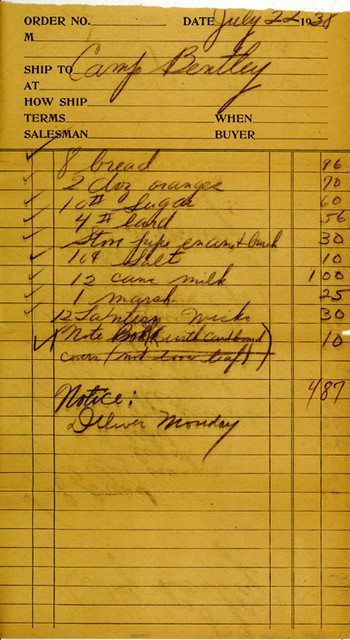 ORDER NO. DATE July 22 1938
M
SHIP TO Camp Bentley
AT
HOW SHIP
TERMS WHEN
SALESMAN BUYER
8 bread 96
2 doz oranges 70
10# Sugar 60
4# lard 56
Stove pipe enamel & brush 30
10¢ Salt 10
12 cans milk 100
1 marsh. 25
12 Lantern Wicks 30
(Note Book (with cardboard 10
covers (not loose leaf)
487
Notice:
Deliver Monday